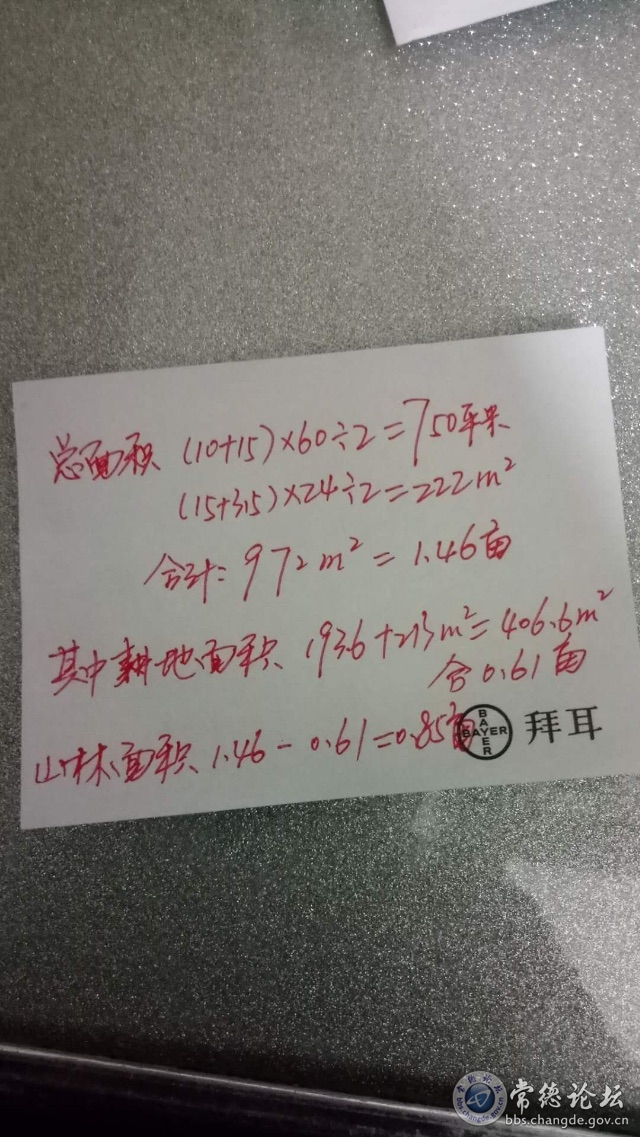 总面积 (10+15)×60÷2=750平米
(15+3.5)×24÷2=222m²
合计: 972m²=1.46亩
其中耕地面积 193.6+213m²=406.6m²
合0.61亩
山林面积 1.46-0.61=0.85亩
BAYER
BAYER
拜耳
常德论坛
常德论坛
bbs.changde.gov.cn
bbs.changde.gov.cn